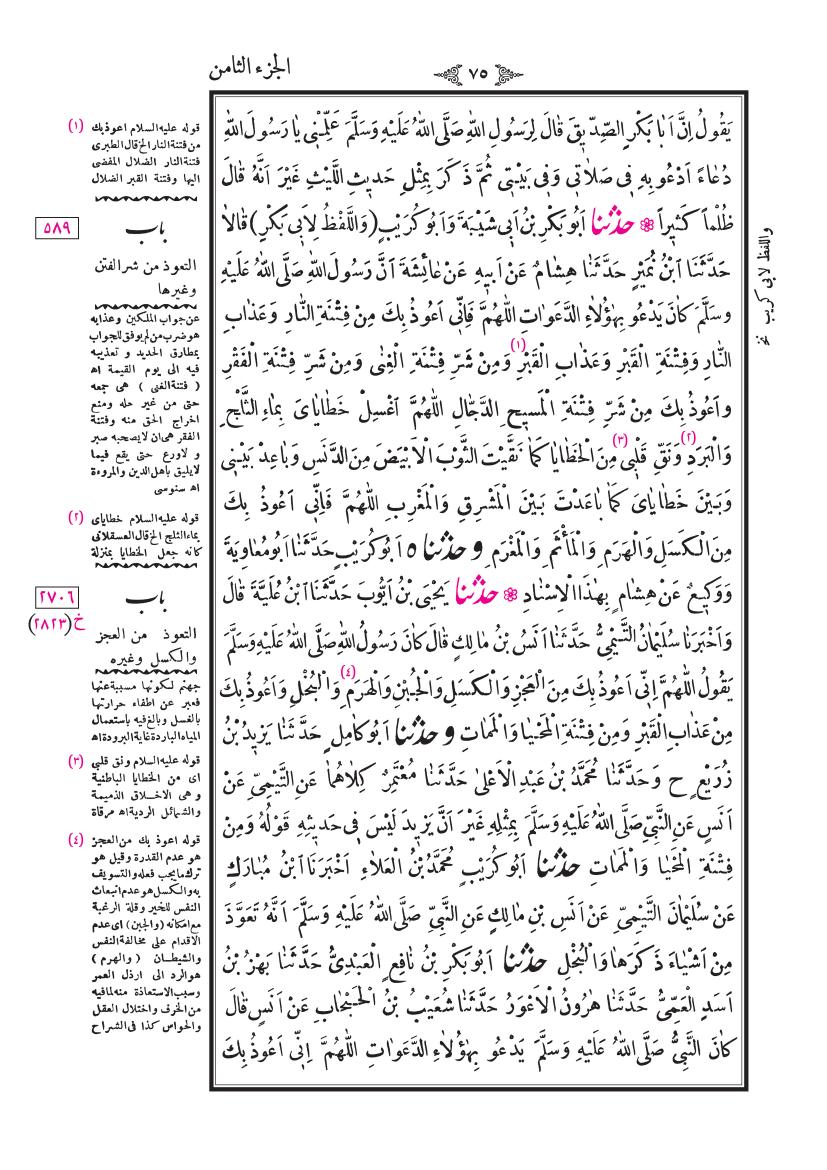 الجزء الثامن
٧٥
يَقُولُ اِنَّ اَبَا بَكْرٍ الصِّدِّيقَ قَالَ لِرَسُولِ اللهِ صَلَّى اللهُ عَلَيْهِ وَسَلَّمَ عَلِّمْنِى يَا رَسُولَ اللهِ
دُعَاءً اَدْعُو بِهِ فِى صَلَاتِى وَفِى بَيْتِى ثُمَّ ذَكَرَ بِمِثْلِ حَدِيثِ اللَّيْثِ غَيْرَ اَنَّهُ قَالَ
ظُلْماً كَثِيراً ❁ حَدَّثَنَا اَبُو بَكْرِ بْنُ اَبِى شَيْبَةَ وَاَبُو كُرَيْبٍ (وَاللَّفْظُ لِاَبِى بَكْرٍ) قَالَا
حَدَّثَنَا ابْنُ نُمَيْرٍ حَدَّثَنَا هِشَامٌ عَنْ اَبِيهِ عَنْ عَائِشَةَ اَنَّ رَسُولَ اللهِ صَلَّى اللهُ عَلَيْهِ
وَسَلَّمَ كَانَ يَدْعُو بِهٰؤُلَاءِ الدَّعَوَاتِ اللّٰهُمَّ فَاِنِّى اَعُوذُ بِكَ مِنْ فِتْنَةِ النَّارِ وَعَذَابِ
النَّارِ وَفِتْنَةِ الْقَبْرِ وَعَذَابِ الْقَبْرِ (١) وَمِنْ شَرِّ فِتْنَةِ الْغِنٰى وَمِنْ شَرِّ فِتْنَةِ الْفَقْرِ
وَاَعُوذُ بِكَ مِنْ شَرِّ فِتْنَةِ الْمَسِيحِ الدَّجَّالِ اللّٰهُمَّ اغْسِلْ خَطَايَاىَ بِمَاءِ الثَّلْجِ
وَالْبَرَدِ (٢) وَنَقِّ قَلْبِى (٣) مِنَ الْخَطَايَا كَمَا نَقَّيْتَ الثَّوْبَ الْاَبْيَضَ مِنَ الدَّنَسِ وَبَاعِدْ بَيْنِى
وَبَيْنَ خَطَايَاىَ كَمَا بَاعَدْتَ بَيْنَ الْمَشْرِقِ وَالْمَغْرِبِ اللّٰهُمَّ فَاِنِّى اَعُوذُ بِكَ
مِنَ الْكَسَلِ وَالْهَرَمِ وَالْمَأْثَمِ وَالْمَغْرَمِ وَحَدَّثَنَاهُ اَبُو كُرَيْبٍ حَدَّثَنَا اَبُو مُعَاوِيَةَ
وَوَكِيعٌ عَنْ هِشَامٍ بِهٰذَا الْاِسْنَادِ ❁ حَدَّثَنَا يَحْيَى بْنُ اَيُّوبَ حَدَّثَنَا ابْنُ عُلَيَّةَ قَالَ
وَاَخْبَرَنَا سُلَيْمَانُ التَّيْمِىُّ حَدَّثَنَا اَنَسُ بْنُ مَالِكٍ قَالَ كَانَ رَسُولُ اللهِ صَلَّى اللهُ عَلَيْهِ وَسَلَّمَ
يَقُولُ اللّٰهُمَّ اِنِّى اَعُوذُ بِكَ مِنَ الْعَجْزِ وَالْكَسَلِ وَالْجُبْنِ وَالْهَرَمِ (٤) وَالْبُخْلِ وَاَعُوذُ بِكَ
مِنْ عَذَابِ الْقَبْرِ وَمِنْ فِتْنَةِ الْمَحْيَا وَالْمَمَاتِ وَحَدَّثَنَا اَبُو كَامِلٍ حَدَّثَنَا يَزِيدُ بْنُ
زُرَيْعٍ ح وَحَدَّثَنَا مُحَمَّدُ بْنُ عَبْدِ الْاَعْلٰى حَدَّثَنَا مُعْتَمِرٌ كِلَاهُمَا عَنِ التَّيْمِىِّ عَنْ
اَنَسٍ عَنِ النَّبِىِّ صَلَّى اللهُ عَلَيْهِ وَسَلَّمَ بِمِثْلِهِ غَيْرَ اَنَّ يَزِيدَ لَيْسَ فِى حَدِيثِهِ قَوْلُهُ وَمِنْ
فِتْنَةِ الْمَحْيَا وَالْمَمَاتِ حَدَّثَنَا اَبُو كُرَيْبٍ مُحَمَّدُ بْنُ الْعَلَاءِ اَخْبَرَنَا ابْنُ مُبَارَكٍ
عَنْ سُلَيْمَانَ التَّيْمِىِّ عَنْ اَنَسِ بْنِ مَالِكٍ عَنِ النَّبِىِّ صَلَّى اللهُ عَلَيْهِ وَسَلَّمَ اَنَّهُ تَعَوَّذَ
مِنْ اَشْيَاءَ ذَكَرَهَا وَالْبُخْلِ حَدَّثَنَا اَبُو بَكْرِ بْنُ نَافِعٍ الْعَبْدِىُّ حَدَّثَنَا بَهْزُ بْنُ
اَسَدٍ الْعَمِّىُّ حَدَّثَنَا هٰرُونُ الْاَعْوَرُ حَدَّثَنَا شُعَيْبُ بْنُ الْحَبْحَابِ عَنْ اَنَسٍ قَالَ
كَانَ النَّبِىُّ صَلَّى اللهُ عَلَيْهِ وَسَلَّمَ يَدْعُو بِهٰؤُلَاءِ الدَّعَوَاتِ اللّٰهُمَّ اِنِّى اَعُوذُ بِكَ
واللفظ لابى كريب نخ
(١) قوله عليه السلام اعوذ بك
من فتنة النار الخ قال الطبرى
فتنة النار الضلال المفضى
اليها وفتنة القبر الضلال
٥٨٩ باب
التعوذ من شر الفتن
وغيرها
عن جواب الملكين وعذابه
هو ضرب من لم يوفق للجواب
بمطارق الحديد و تعذيبه
فيه الى يوم القيمة اه
(فتنة الغنى) هى جمعه
حتى من غير حله ومنع
اخراج الحق منه وفتنة
الفقر هى ان لا يصحبه صبر
و لا ورع حتى يقع فيما
لا يليق باهل الدين والمروءة
اه سنوسى
(٢) قوله عليه السلام خطاياى
بماء الثلج الخ قال العسقلانى
كانه جعل الخطايا بمنزلة
٢٧٠٦ باب
خ (٢٨٢٣)
التعوذ من العجز
والكسل وغيره
جهنم لكونها مسببة عنها
فعبر عن اطفاء حرارتها
بالغسل وبالغ فيه باستعمال
المياه الباردة غاية البرودة اه
(٣) قوله عليه السلام ونق قلبى
اى من الخطايا الباطنية
و هى الاخلاق الذميمة
والشمائل الردية اه مرقاة
(٤) قوله اعوذ بك من العجز
هو عدم القدرة وقيل هو
ترك ما يجب فعله والتسويف
به والكسل هو عدم انبعاث
النفس للخير وقلة الرغبة
مع امكانه (والجبن) اى عدم
الاقدام على مخالفة النفس
والشيطان (والهرم)
هو الرد الى ارذل العمر
وسبب الاستعاذة منه لما فيه
من الخرف واختلال العقل
والحواس كذا فى الشراح